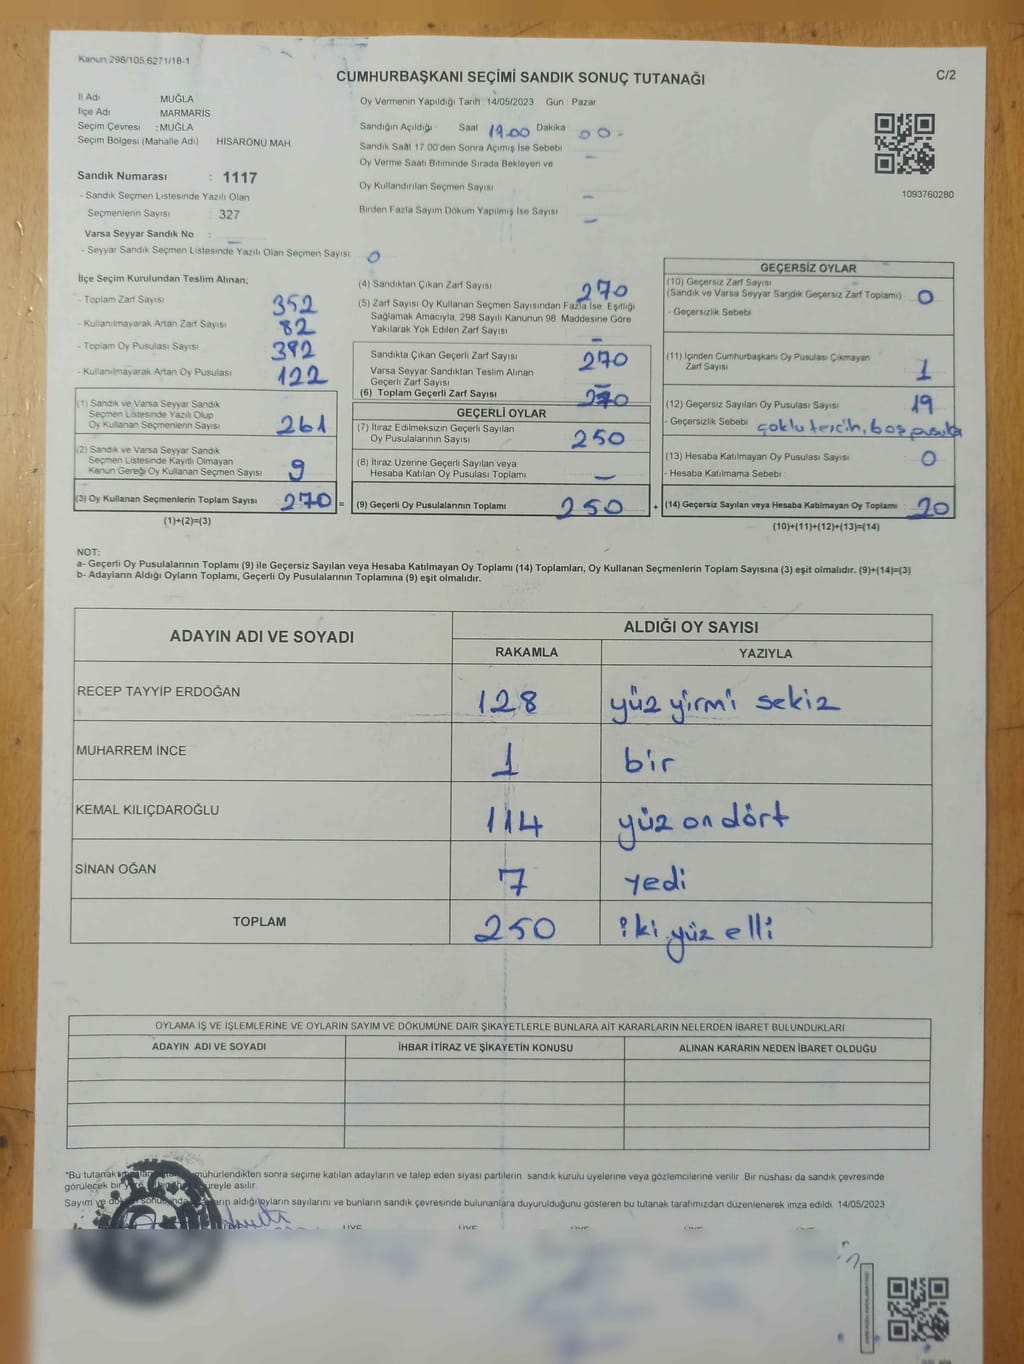 Kanun.298/105,6271/18-1
C/2
CUMHURBAŞKANI SEÇİMİ SANDIK SONUÇ TUTANAĞI
İl Adı MUĞLA
İlçe Adı MARMARİS
Seçim Çevresi : MUĞLA
Seçim Bölgesi (Mahalle Adı) HİSARÖNÜ MAH.
Sandık Numarası : 1117
- Sandık Seçmen Listesinde Yazılı Olan
Seçmenlerin Sayısı : 327
Varsa Seyyar Sandık No : –
- Seyyar Sandık Seçmen Listesinde Yazılı Olan Seçmen Sayısı: 0
Oy Vermenin Yapıldığı Tarih 14/05/2023 Gün Pazar
Sandığın Açıldığı Saat 19.00 Dakika 00-
Sandık Saat 17 00'den Sonra Açımış İse Sebebi –
Oy Verme Saati Bitiminde Sırada Bekleyen ve
Oy Kullandırılan Seçmen Sayısı –
Birden Fazla Sayım Döküm Yapılmış İse Sayısı –
1093760280
İlçe Seçim Kurulundan Teslim Alınan;
- Toplam Zarf Sayısı 352
- Kullanılmayarak Artan Zarf Sayısı 82
- Toplam Oy Pusulası Sayısı 392
- Kullanılmayarak Artan Oy Pusulası 122
(1) Sandık ve Varsa Seyyar Sandık
Seçmen Listesinde Yazılı Olup
Oy Kullanan Seçmenlerin Sayısı 261
(2) Sandık ve Varsa Seyyar Sandık
Seçmen Listesinde Kayıtlı Olmayan
Kanun Gereği Oy Kullanan Seçmen Sayısı 9
(3) Oy Kullanan Seçmenlerin Toplam Sayısı 270 =
(1)+(2)=(3)
(4) Sandıktan Çıkan Zarf Sayısı 270
(5) Zarf Sayısı Oy Kullanan Seçmen Sayısından Fazla İse, Eşitliği
Sağlamak Amacıyla, 298 Sayılı Kanunun 98. Maddesine Göre
Yakılarak Yok Edilen Zarf Sayısı –
Sandıkta Çıkan Geçerli Zarf Sayısı 270
Varsa Seyyar Sandıktan Teslim Alınan
Geçerli Zarf Sayısı –
(6) Toplam Geçerli Zarf Sayısı 270
GEÇERLİ OYLAR
(7) İtiraz Edilmeksizin Geçerli Sayılan
Oy Pusulalarının Sayısı 250
(8) İtiraz Üzerine Geçerli Sayılan veya
Hesaba Katılan Oy Pusulası Toplamı –
(9) Geçerli Oy Pusulalarının Toplamı 250 +
GEÇERSİZ OYLAR
(10) Geçersiz Zarf Sayısı
(Sandık ve Varsa Seyyar Sandık Geçersiz Zarf Toplamı) 0
- Geçersizlik Sebebi
(11) İçinden Cumhurbaşkanı Oy Pusulası Çıkmayan
Zarf Sayısı 1
(12) Geçersiz Sayılan Oy Pusulası Sayısı 19
- Geçersizlik Sebebi çoklu tercih, boş pusula
(13) Hesaba Katılmayan Oy Pusulası Sayısı 0
- Hesaba Katılmama Sebebi
(14) Geçersiz Sayılan veya Hesaba Katılmayan Oy Toplamı 20
(10)+(11)+(12)+(13)=(14)
NOT:
a- Geçerli Oy Pusulalarının Toplamı (9) ile Geçersiz Sayılan veya Hesaba Katılmayan Oy Toplamı (14) Toplamları, Oy Kullanan Seçmenlerin Toplam Sayısına (3) eşit olmalıdır. (9)+(14)=(3)
b- Adayların Aldığı Oyların Toplamı, Geçerli Oy Pusulalarının Toplamına (9) eşit olmalıdır.
ADAYIN ADI VE SOYADI
ALDIĞI OY SAYISI
RAKAMLA YAZIYLA
RECEP TAYYİP ERDOĞAN 128 yüz yirmi sekiz
MUHARREM İNCE 1 bir
KEMAL KILIÇDAROĞLU 114 yüz on dört
SİNAN OĞAN 7 yedi
TOPLAM 250 iki yüz elli
OYLAMA İŞ VE İŞLEMLERİNE VE OYLARIN SAYIM VE DÖKÜMÜNE DAİR ŞİKAYETLERLE BUNLARA AİT KARARLARIN NELERDEN İBARET BULUNDUKLARI
ADAYIN ADI VE SOYADI İHBAR İTİRAZ VE ŞİKAYETİN KONUSU ALINAN KARARIN NEDEN İBARET OLDUĞU
*Bu tutanak mühürlendikten sonra seçime katılan adayların ve talep eden siyasi partilerin sandık kurulu üyelerine veya gözlemcilerine verilir. Bir nüshası da sandık çevresinde
görülecek bir süreyle asılır.
Sayım ve aldığı oyların sayılarını ve bunların sandık çevresinde bulunanlara duyurulduğunu gösteren bu tutanak tarafımızdan düzenlenerek imza edildi. 14/05/2023
ÜYE ÜYE ÜYE ÜYE ÜYE